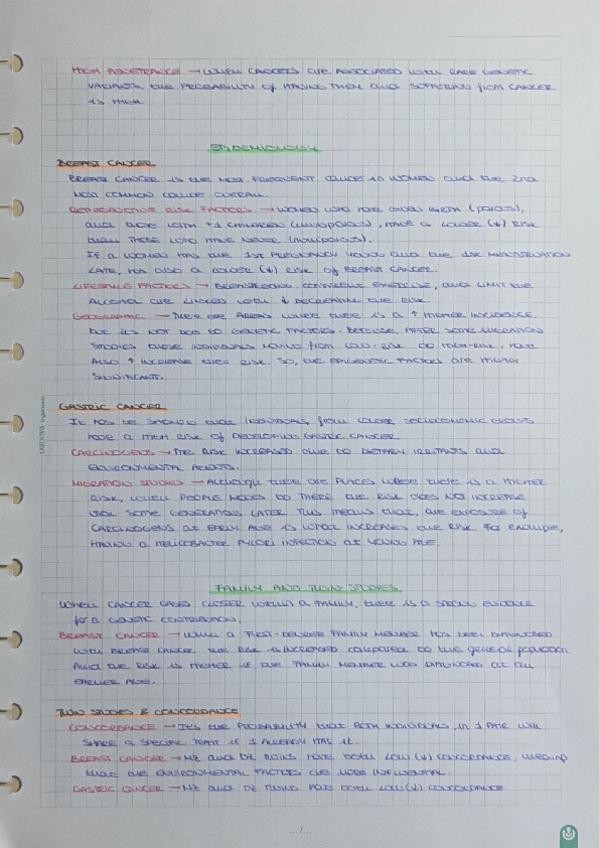 HIGH PENETRANCE → WHEN CANCERS are ASSOCIATED with RARE GENETIC
VARIANTS, the PROBABILITY of HAVING THEM and SUFFERING from CANCER
is HIGH
EPIDEMIOLOGY
BREAST CANCER
BREAST CANCER is the MOST FREQUENT cancer in WOMEN and the 2nd
MOST COMMON cancer OVERALL.
REPRODUCTIVE RISK FACTORS → WOMEN WHO have given BIRTH (parous),
and also with +1 CHILDREN (multiparous), HAVE A LOWER (↓) RISK
than THOSE WHO HAVE NEVER (nulliparous).
If a WOMAN HAS the 1st PREGNANCY YOUNG and the 1st MENSTRUATION
LATE, HAS also a LOWER (↓) RISK of BREAST CANCER.
LIFESTYLE FACTORS → BREASTFEEDING, EXERCISE, and LIMIT the
ALCOHOL are LINKED with ↓ DECREASING the RISK
GEOGRAPHIC → THERE are AREAS WHERE there is a ↑ HIGHER INCIDENCE,
but it's NOT DUE to GENETIC FACTORS. BECAUSE, AFTER SOME MIGRATION
STUDIES those INDIVIDUALS MOVING from LOW-RISK to HIGH-RISK, HAVE
ALSO ↑ INCREASE their RISK. SO, the EPIGENETIC FACTORS are HIGHLY
SIGNIFICANT.
GASTRIC CANCER
It HAS be SHOWN that INDIVIDUALS from LOWER SOCIOECONOMIC GROUPS
HAVE a HIGH RISK of DEVELOPING GASTRIC CANCER
CARCINOGENS → THE RISK INCREASED due to DIETARY IRRITANTS and
ENVIRONMENTAL AGENTS.
MIGRATION STUDIES → Although there are PLACES WHERE there is a HIGHER
RISK, WHEN PEOPLE MOVES to THERE the RISK does NOT INCREASE
until SOME GENERATIONS LATER. This MEANS that, the EXPOSURE of
CARCINOGENS at EARLY AGE is WHAT INCREASES the RISK. For EXAMPLE,
HAVING a HELICOBACTER PYLORI INFECTION at YOUNG AGE.
FAMILY AND TWIN STUDIES
WHEN CANCER CASES CLUSTER WITHIN a FAMILY, there is a STRONG EVIDENCE
for a GENETIC CONTRIBUTION.
BREAST CANCER → WHEN a FIRST-DEGREE FAMILY MEMBER HAS been DIAGNOSED
with BREAST CANCER the RISK is INCREASED compared to the general population
And the RISK is HIGHER if the FAMILY MEMBER WAS DIAGNOSED at an
EARLIER AGE.
TWIN STUDIES & CONCORDANCE
CONCORDANCE → It's the PROBABILITY that BOTH INDIVIDUALS in 1 PAIR WILL
SHARE a SPECIFIC TRAIT if 1 ALREADY HAS it.
BREAST CANCER → MZ and DZ TWINS HAVE both LOW (↓) CONCORDANCE, MEANING
that the ENVIRONMENTAL FACTORS are MORE INFLUENTIAL.
GASTRIC CANCER → MZ and DZ TWINS HAVE both LOW (↓) CONCORDANCE.
.../...